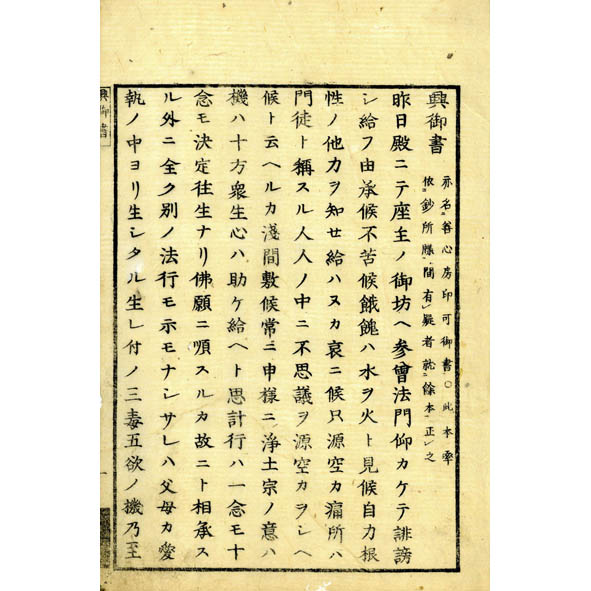 興御書
亦名善心房印可御書○此本率
依鈔所牒間有疑者就餘本正之
昨日殿ニテ座主ノ御坊ヘ參會法門仰カケテ誹謗
シ給フ由承候不苦候餓餽ハ水ヲ火ト見候自力根
性ノ他力ヲ知せ給ハヌカ哀ニ候只源空カ痛所ハ
門徒ト稱スル人人ノ中ニ不思議ヲ源空カヲシヘ
候ト云ヘルカ淺間敷候常ニ申樣ニ淨土宗ノ意ハ
機ハ十方衆生心ハ助ケ給ヘト思計行ハ一念モ十
念モ決定往生ナリ佛願ニ順スルカ故ニト相承ス
ル外ニ全ク別ノ法行モ示モナシサレハ父母カ愛
執ノ中ヨリ生シタル生レ付ノ三毒五欲ノ機乃至
興御書
一